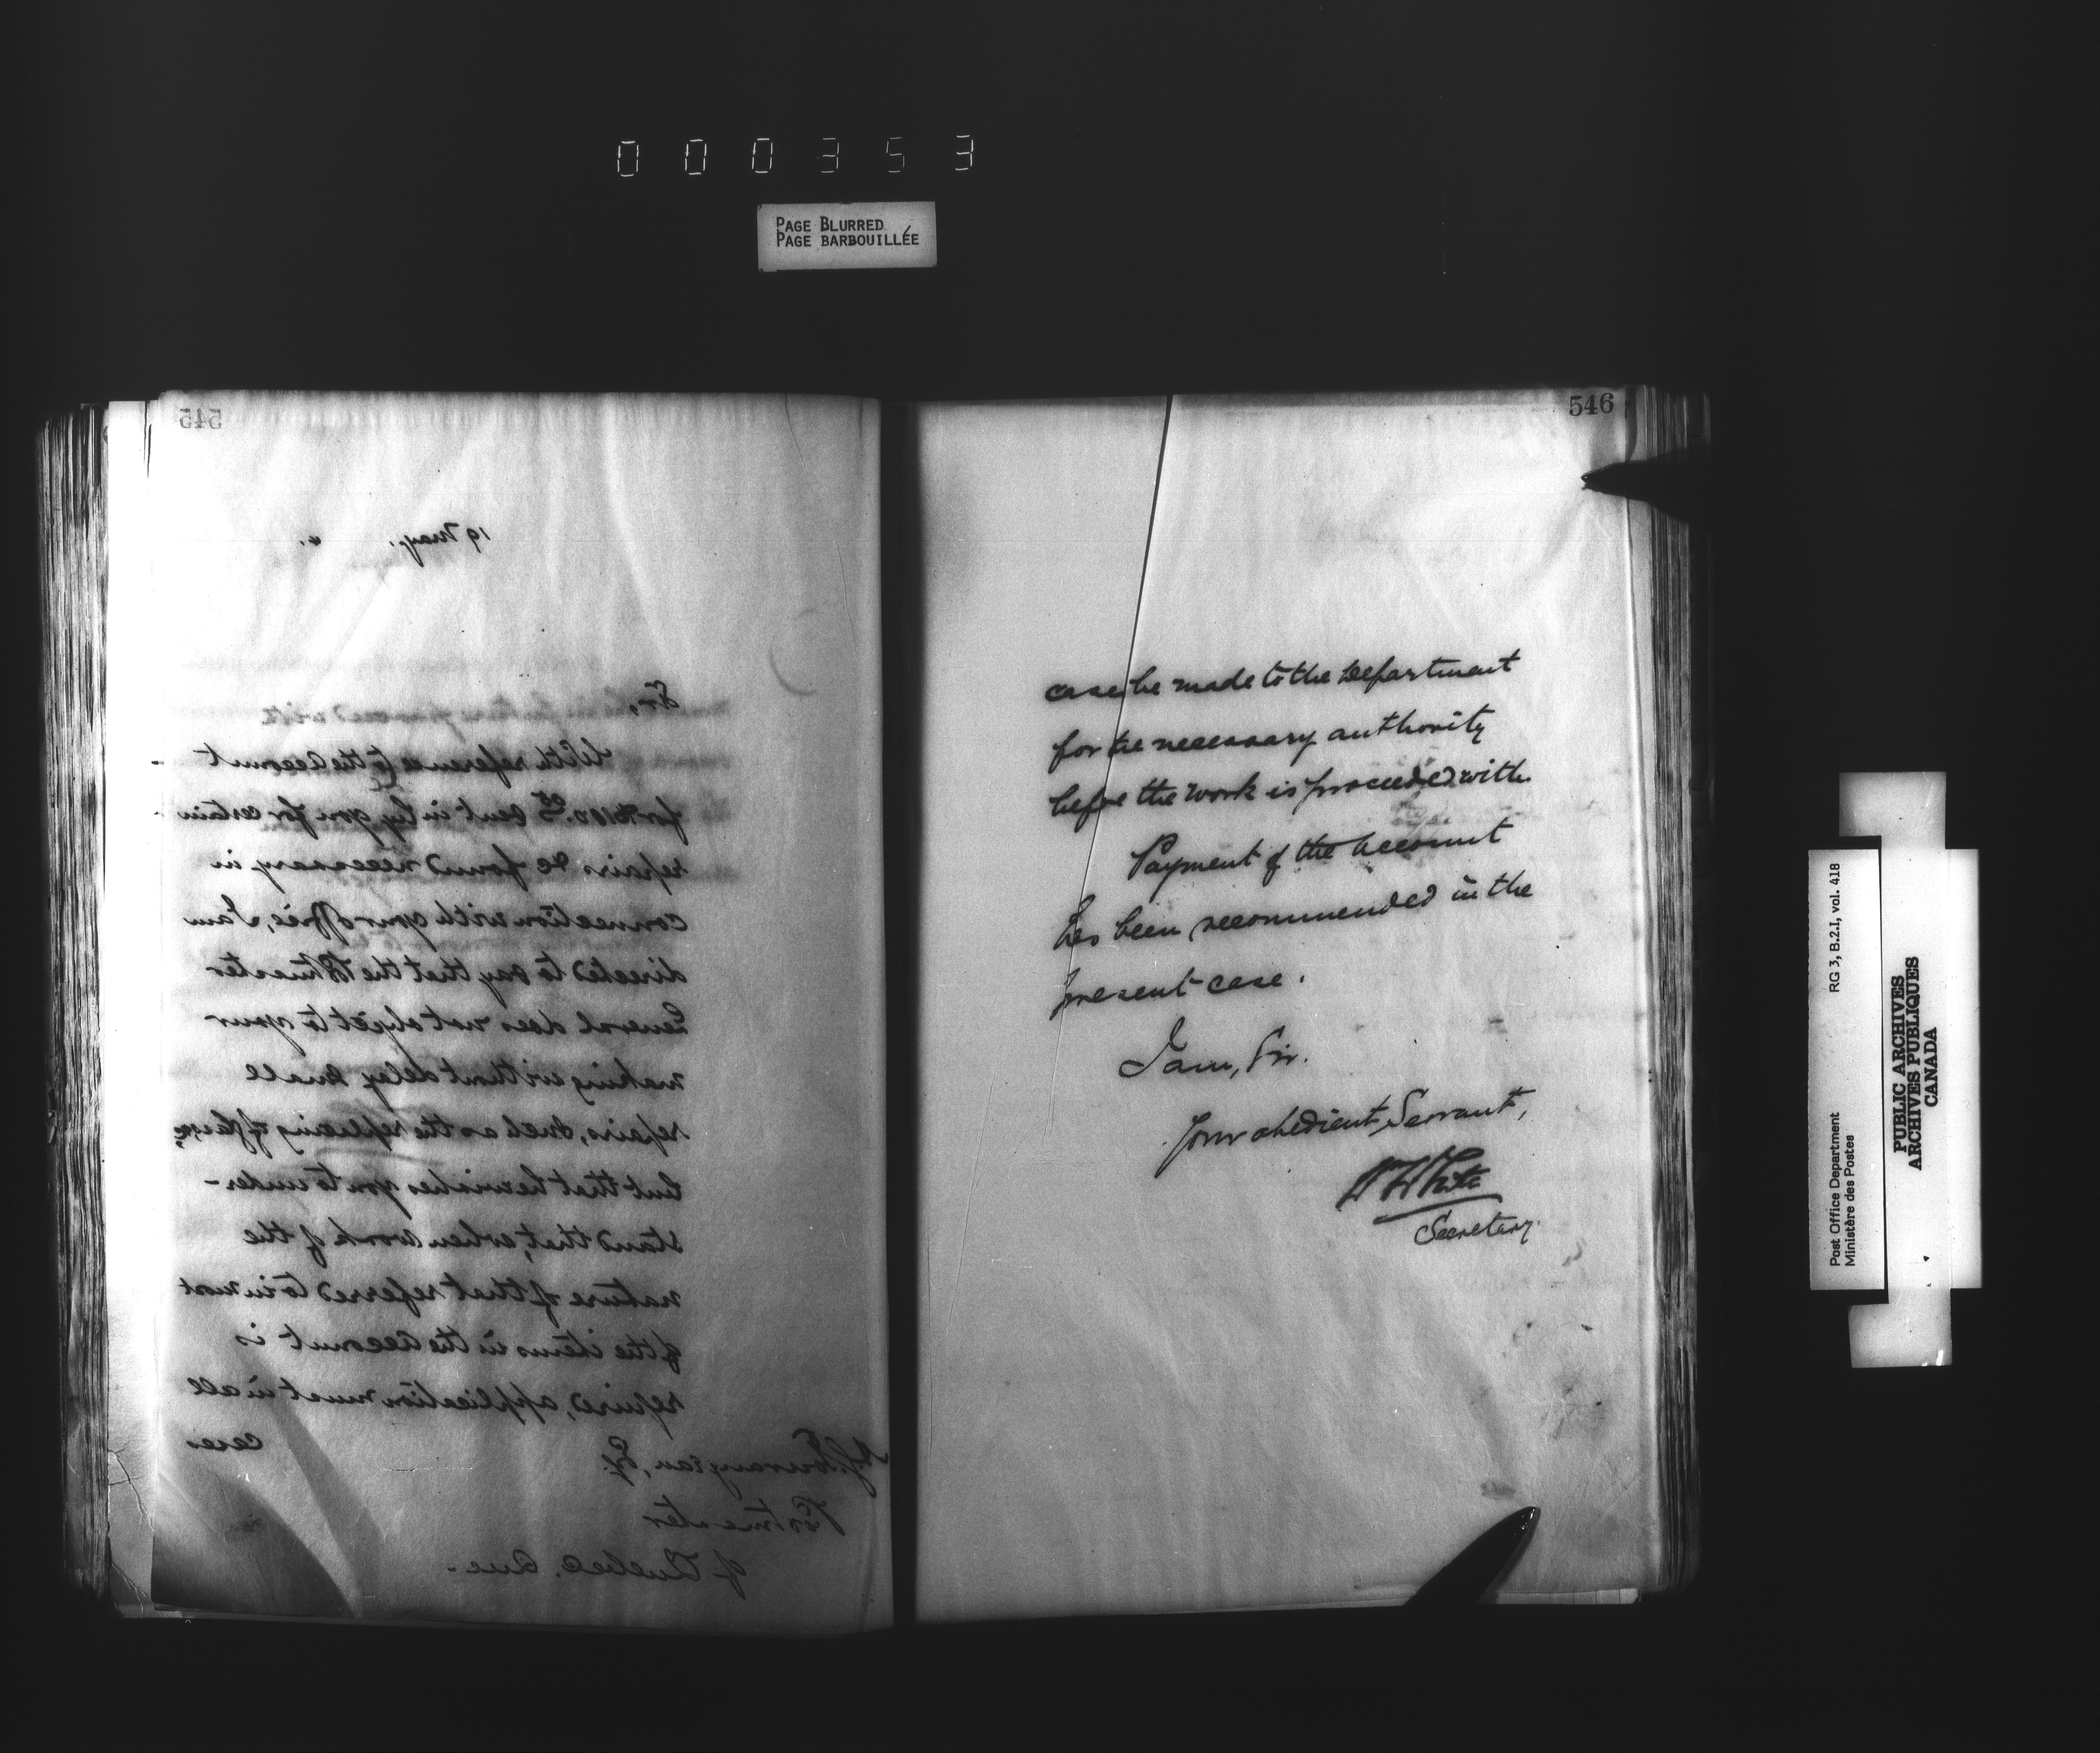 000353
PAGE BLURRED
PAGE BARBOUILLÉE
545
19 May.
Sir,
With reference to the account
sent in by you for certain
repairs &c found necessary in
connection with your office, I am
directed to say that the Postmaster
General does not object to your
making without delay small
repairs, such as the replacing of
but that he wishes you to under-
stand that, when work of the
nature of that referred to in most
of the items in the account is
required, application must in all
cases
Esq.
Postmaster
of Quebec, Que.
546
case be made to the Department
for the necessary authority
before the work is proceeded with.
Payment of the account
has been recommended in the
present case.
I am, Sir.
Your obedient Servant,
Wm White
Secretary.
RG 3, B.2.I, vol. 418
Post Office Department
Ministère des Postes
PUBLIC ARCHIVES
ARCHIVES PUBLIQUES
CANADA